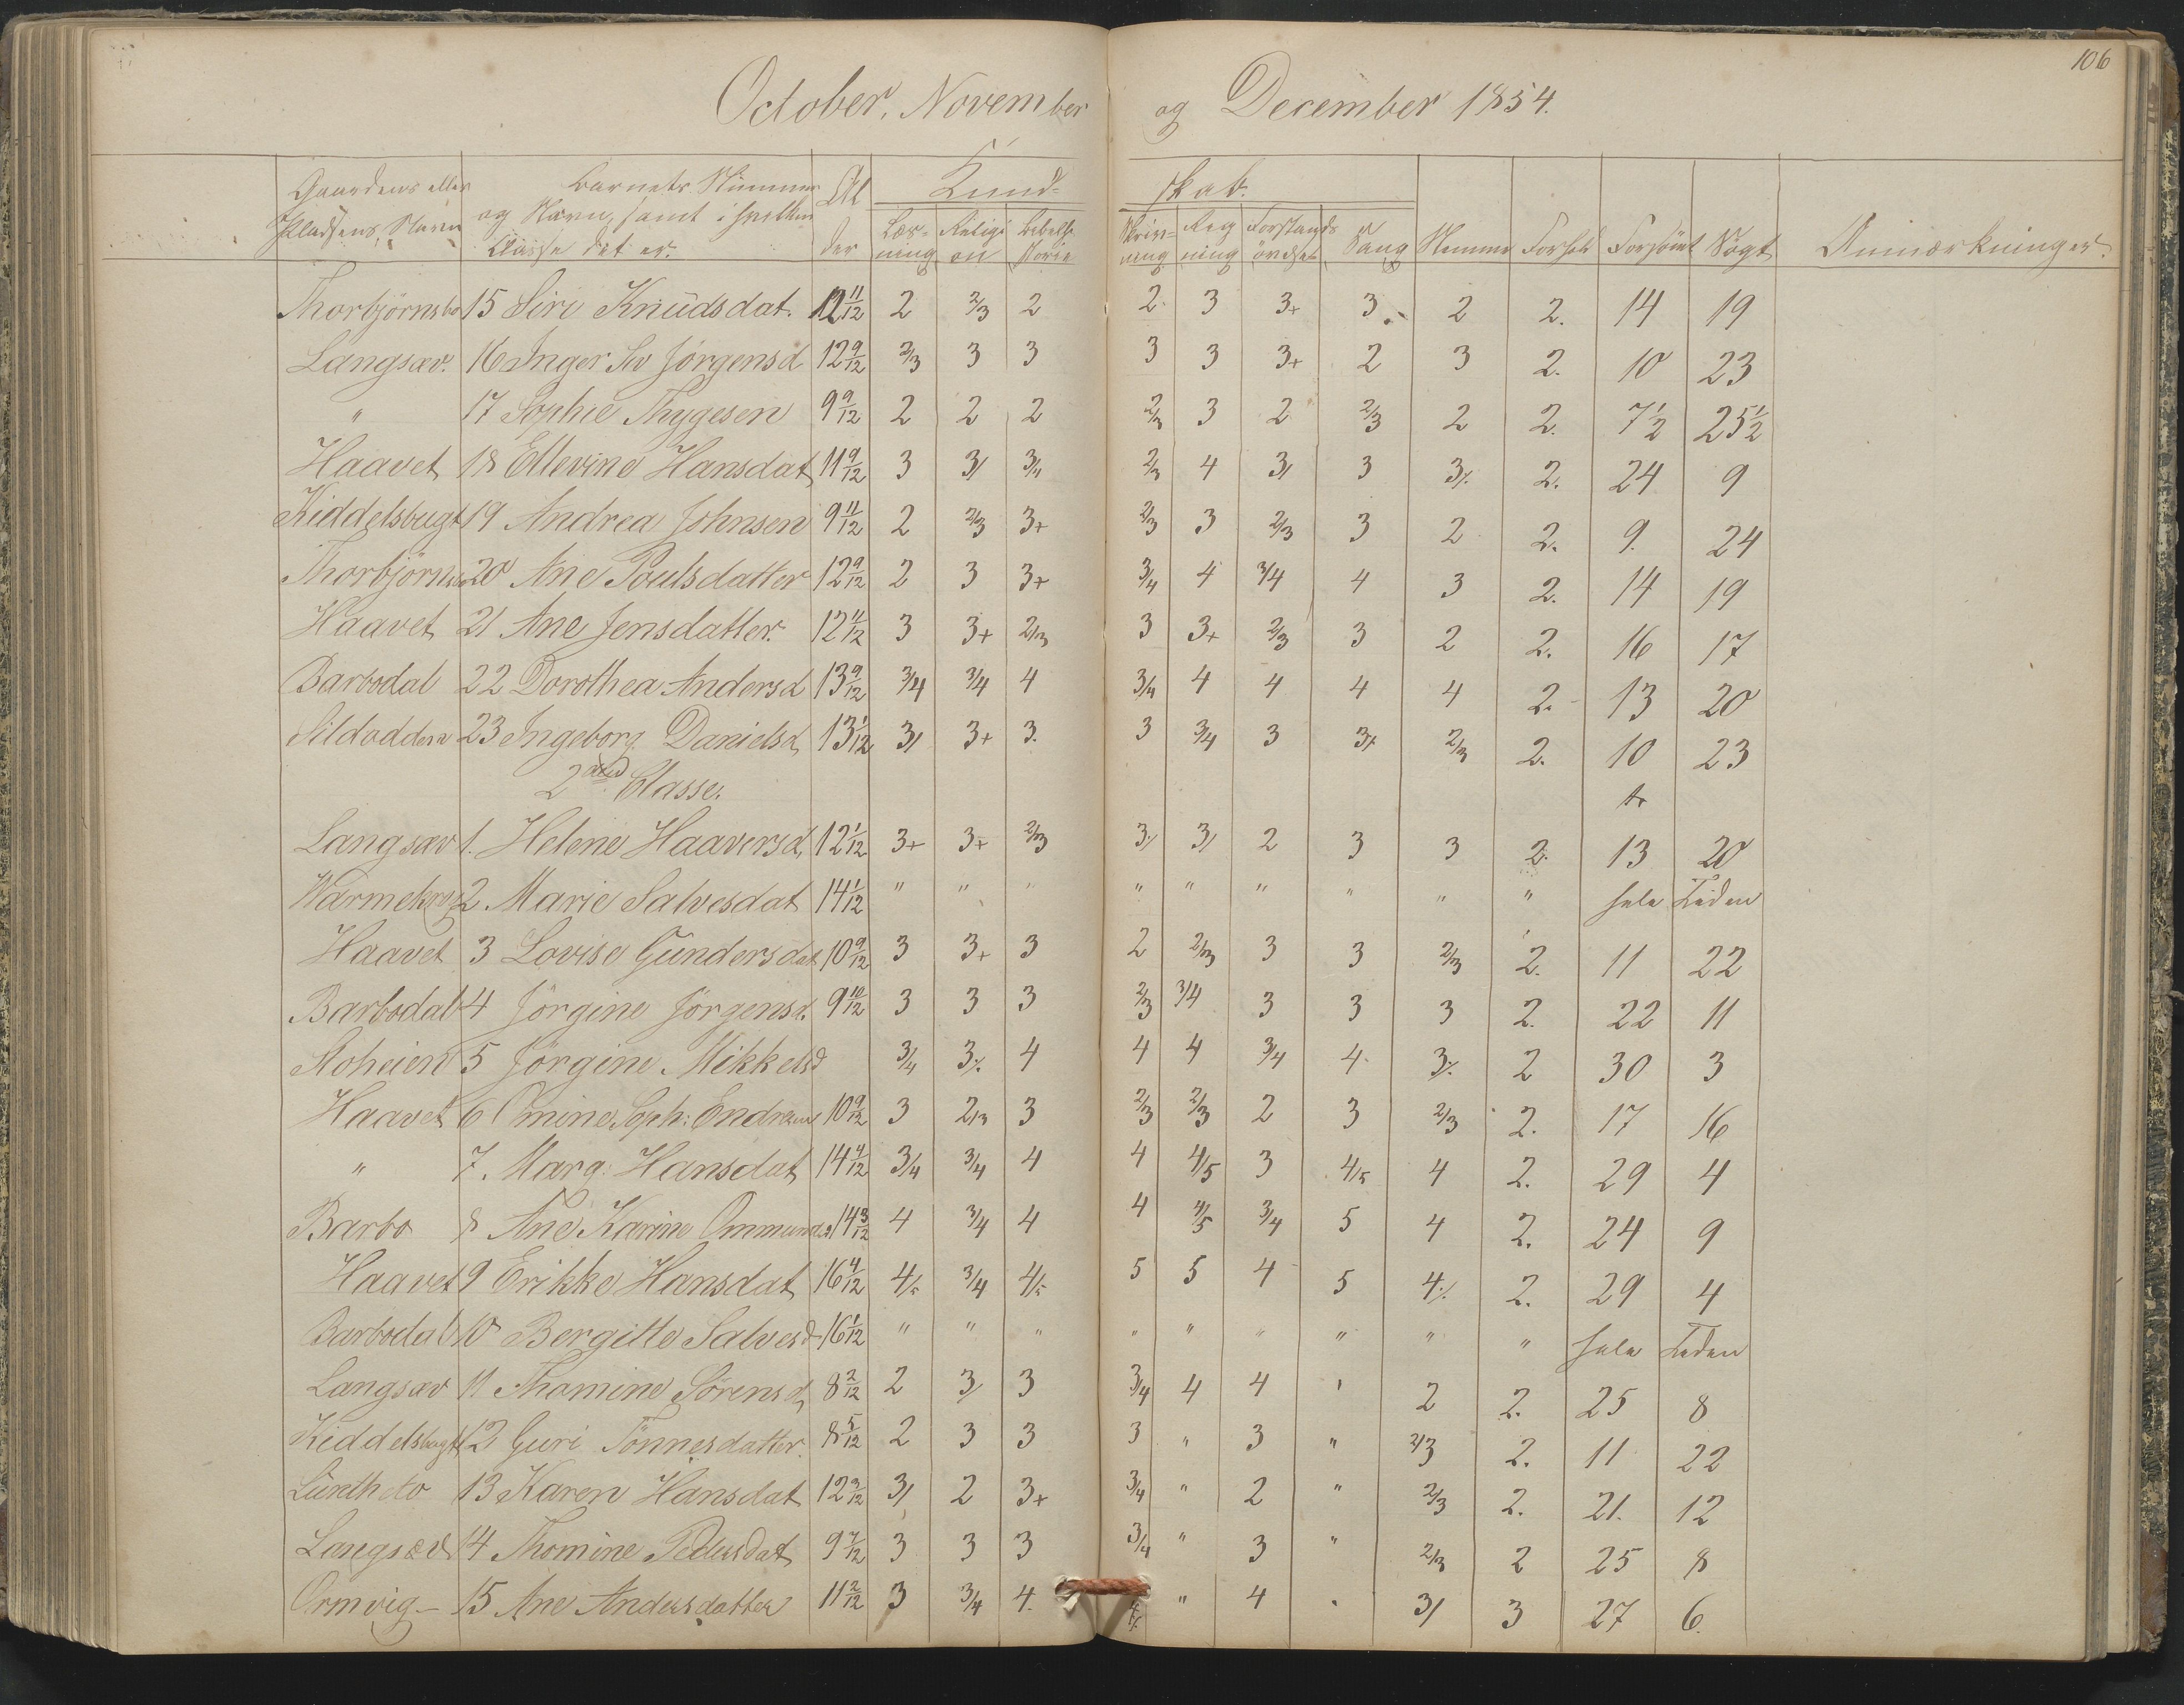 106
October, November og December 1854.
Gaardens eller Pladsens Navn | Barnets Nummer og Navn, samt i hvilken Classe det er. | Alder | Kundskab. | Nemme | Forhold | Forsömt | Sögt | Anmærkninger.
Læsning | Religion | Bibelhistorie | Skrivning | Regning | Forstandsövelse | Sang
Thorbjörnsbo 15 Siri Knüdsdat. 12 11/12 2 2/3 2 2 3 3+ 3 2 2. 14 19
Langsæv. 16 Inger Jörgensd 12 9/12 2/3 3 3 3 3 3+ 2 3 2. 10 23
" 17 Sophie Thygesen 9 9/12 2 2 2 2/3 3 2 2/3 2 2. 7 1/2 25 1/2
Haavet 18 Ellevine Hansdat 11 9/12 3 3/ 3/4 2/3 4 3/ 3 3/. 2. 24 9
Kiddelsbugt 19 Andrea Johnsen 9 11/12 2 2/3 3+ 2/3 3 2/3 3 2 2. 9. 24
Thorbjörnsbo 20 Ane Poulsdatter 12 9/12 2 3 3+ 3/4 4 3/4 4 3 2. 14 19
Haavet 21 Ane Jensdatter. 12 11/12 3 3+ 2/3 3 3+ 2/3 3 2 2. 16 17
Barbodal 22 Dorothea Andersd 13 9/12 3/4 3/4 4 3/4 4 4 4 4 2. 13 20
Sildodden 23 Ingeborg Danielsd 13 1/12 3/ 3+ 3. 3 3/4 3 3+ 2/3 2. 10 23
2 Classe.
Langsæv 1. Helene Haaversd, 12 1/12 3+ 3+ 2/3 3/ 3/ 2 3 3 2. 13 20
2 Marie Salvesdat 14 1/12 " " " " " " " " " hele Tiden
Haavet 3 Lovise Gündersdat 10 9/12 3 3+ 3 2 2/3 3 3 2/3 2. 11 22
Barbodal 4 Jörgine Jörgensd. 9 10/12 3 3 3 2/3 3/4 3 3 3 2. 22 11
Stoheien 5 Jörgine Mikkelsd 3/4 3/. 4 4 4 3/4 4 3/. 2 30 3
Haavet 6 Omine Soph: 10 9/12 3 2/3 3 2/3 2/3 2 3 2/3 2. 17 16
" 7. Marg: Hansdat 14 4/12 3/4 3/4 4 4 4/5 3 4/5 4 2. 29 4
Barbo 8 Ane Karine 14 3/12 4 3/4 4 4 4/5 3/4 5 4 2. 24 9
Haavet 9 Erikke Hansdat 16 4/12 4/5 3/4 4/5 5 5 4 5 4/. 2. 29 4
Barbodal 10 Bergitte Salvesd 16 1/12 " " " " " " " " " hele Tiden
Langsæv 11 Thomine Sörensd, 8 2/12 2 3/ 3 3/4 4 4 ' 2 2. 25 8
Kiddelsbugt 12 Guri Tönnesdatter. 8 5/12 2 3 3 3 " 3 " 2/3 2. 11 22
13 Karen Hansdat 12 3/12 3/ 2 3+ 3/4 " 2 " 2/3 2. 21. 12
Langsæv 14 Thomine Pedersdat 9 7/12 3 3 3 3/4 " 3 " 2/3 2 25 8
Ormvig- 15 Ane Andersdatter 11 2/12 3 3/4 4. " 4 3/ 3 27 6.